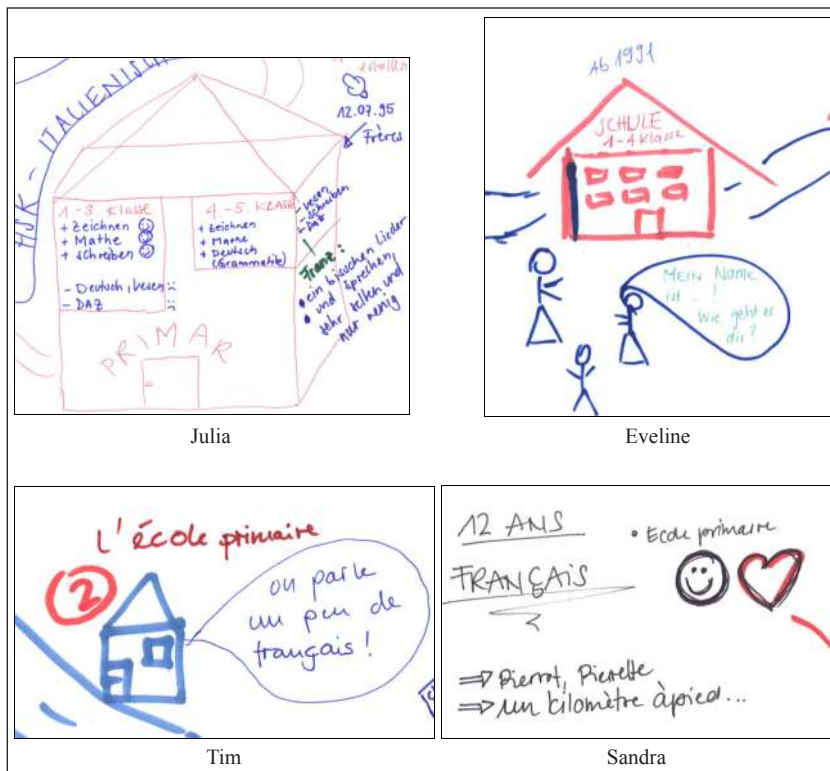 HSK - ITALIENISCH
12.07.95
Frères
1.-3. Klasse
+ Zeichnen
+ Mathe
+ schreiben
- Deutsch, lesen
- DAZ
4.-5. KLASSE
+ zeichnen
+ Mathe
+ Deutsch
(Grammatik)
- lesen
- schreiben
- DAZ
Franz:
• ein bisschen Lieder
• und sprechen,
sehr selten und
nur wenig
PRIMAR
Julia
Ab 1991
SCHULE
1-4 Klasse
MEIN NAME
ist ... !
Wie geht es
dir?
Eveline
L'école primaire
2
on parle
un peu de
français!
Tim
12 ANS
• Ecole primaire
FRANÇAIS
⇒ Pierrot, Pierette
⇒ un kilomètre à pied...
Sandra